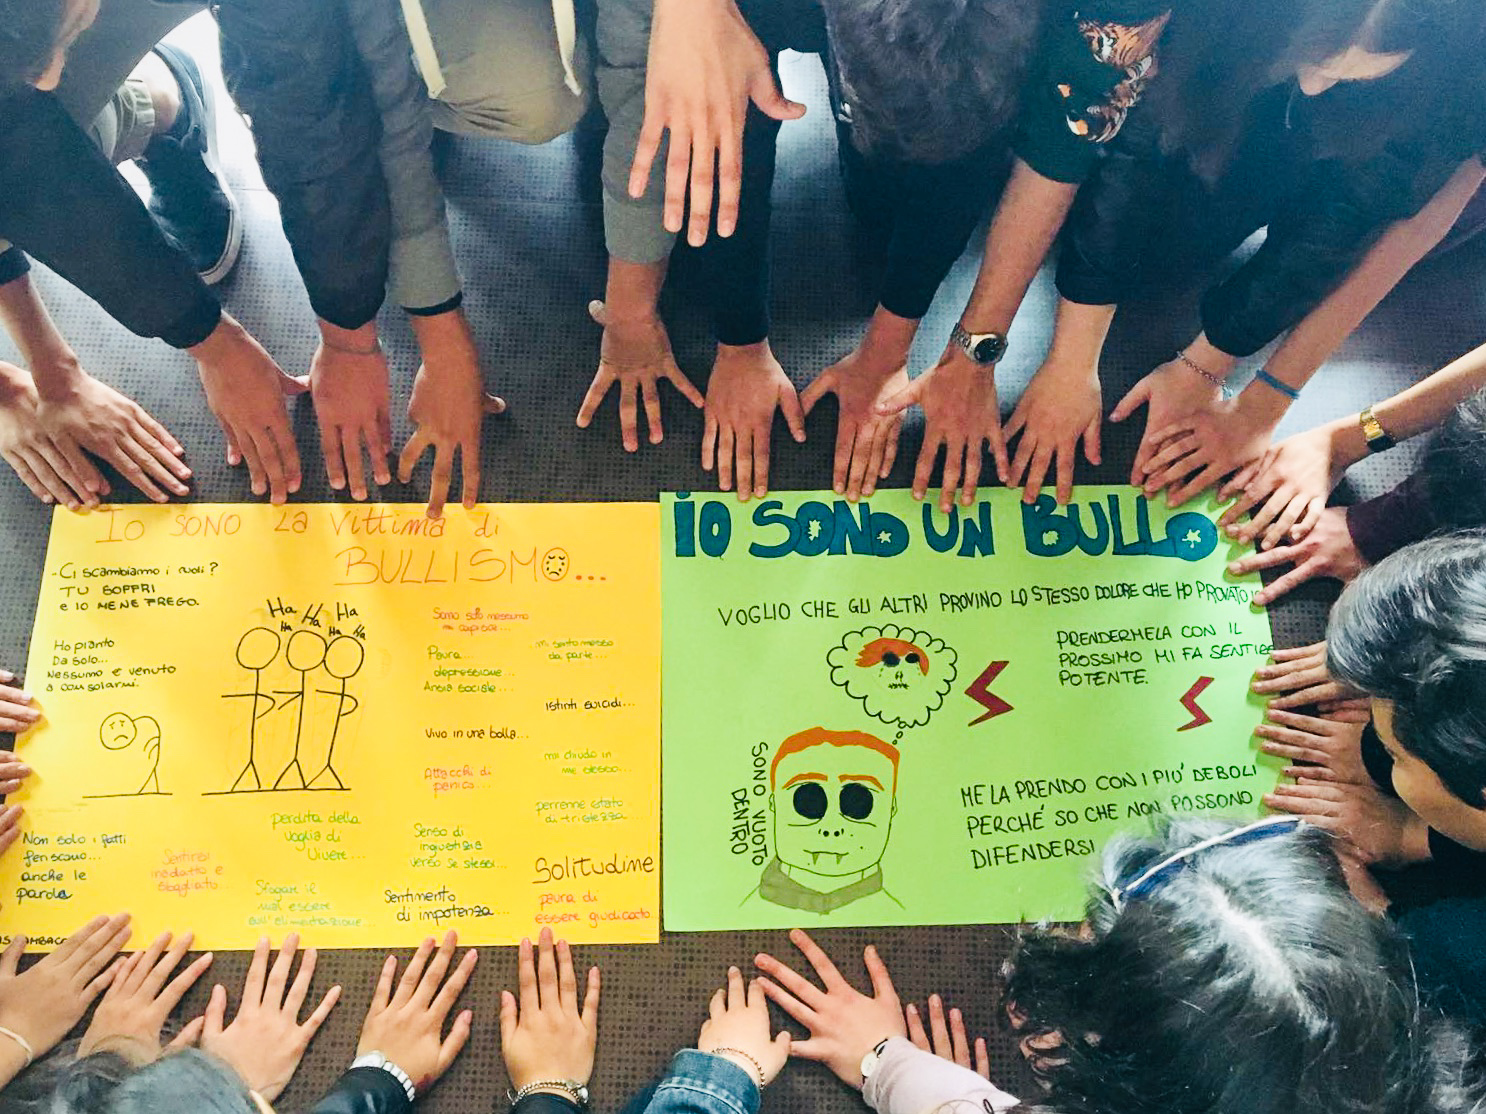 Io SONO La Vittima di
BULLISMO...
-Ci scambiamo i ruoli?
TU SOFFRI
e IO ME NE FREGO.
Ho pianto
Da solo...
Nessuno è venuto
a consolarmi.
Ha Ha Ha
Ha Ha Ha
Sono solo nessuno
mi capisce...
Paura...
depressione...
Ansia sociale...
mi sento messo
da parte...
istinti suicidi...
Vivo in una bolla...
mi chiudo in
me stesso...
Attacchi di
panico...
perenne stato
di tristezza...
perdita della
voglia di
Vivere...
Senso di
ingiustizia
verso se stessi...
Solitudine
Non solo i fatti
feriscono...
anche le
parole
Sentirsi
inadatto e
sbagliato...
Sfogare il
mal essere
sull'alimentazione...
Sentimento
di impotenza...
paura di
essere giudicato...
IO SONO UN BULLO
VOGLIO CHE GLI ALTRI PROVINO LO STESSO DOLORE CHE HO PROVATO IO
PRENDERMELA CON IL
PROSSIMO MI FA SENTIRE
POTENTE.
SONO VUOTO
DENTRO
ME LA PRENDO CON I PIU' DEBOLI
PERCHÉ SO CHE NON POSSONO
DIFENDERSI